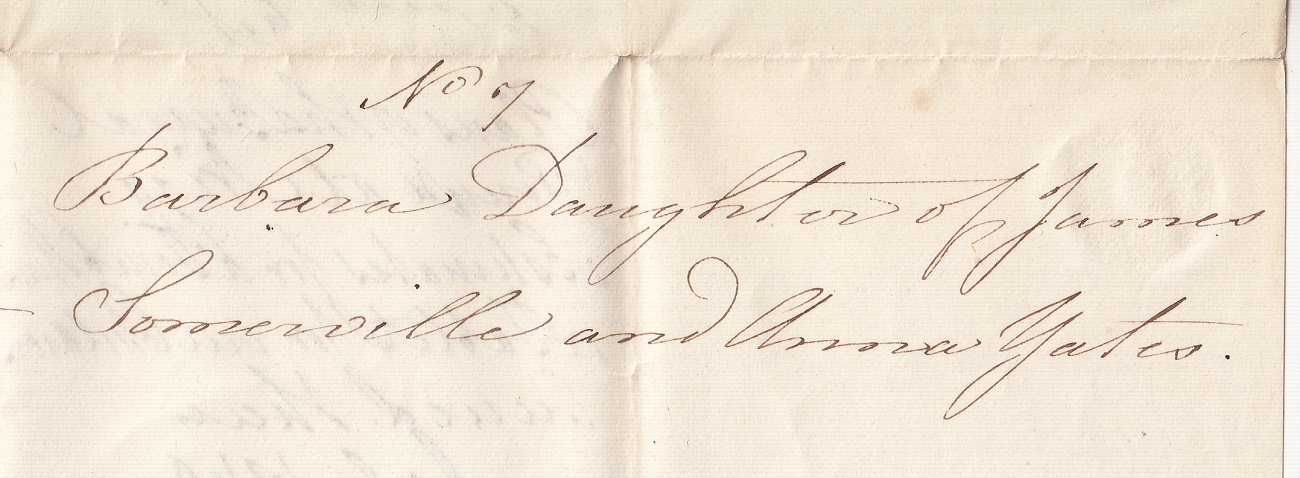 No 7
Barbara Daughter of James
Somerville and Anna Yates.